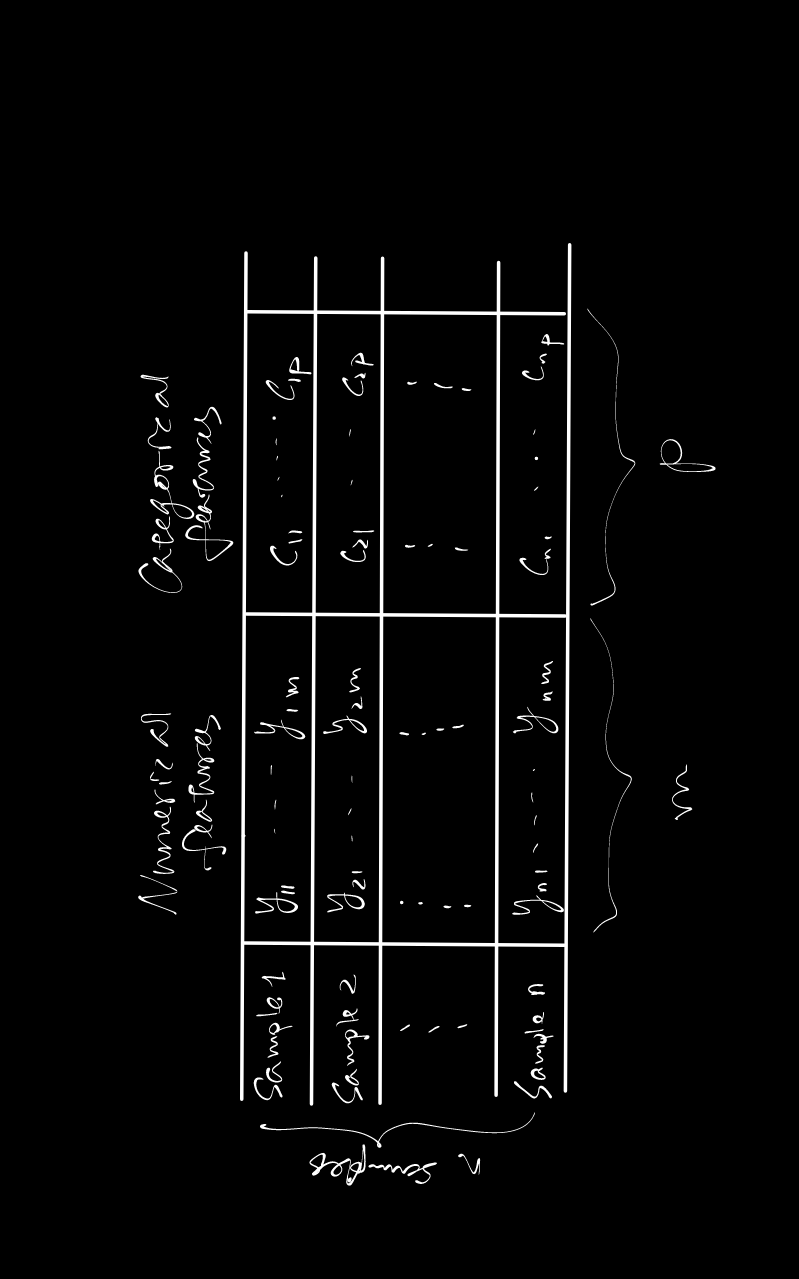 Numerical features Categorical features
Sample 1 y11 ---- y1m C11 ...... C1p
Sample 2 y21 ---- y2m C21 -- - C2p
Sample n yn1 ----- ynm Cn1 .... Cnp
m p
n samples